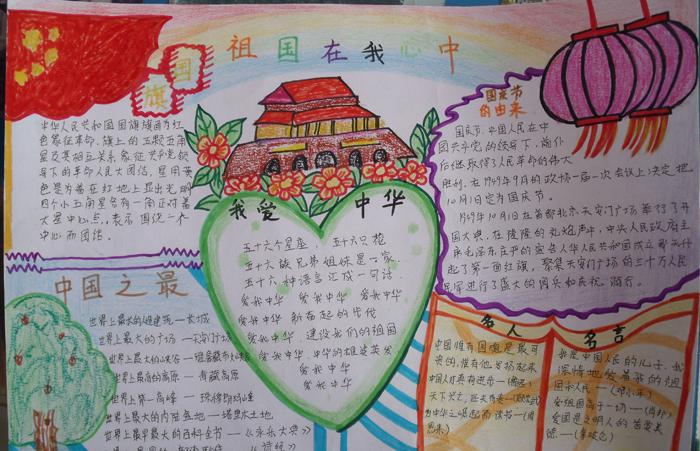 祖国在我心中
国旗
中华人民共和国国旗旗面为红
色象征革命.旗上的五颗五角
星及其相互关系象征共产党领
导下的革命人民大团结,星用黄
色是为着在红地上显出光明
四个小五角星各有一角正对着
大星中心点,表示围绕一个
中心而团结.
中国之最
世界上最大的建筑—长城
世界上最大的广场—天安门广场
世界上最大的峡谷—雅鲁藏布大峡谷
世界上最高的高原—青藏高原
世界上第一高峰—珠穆朗玛峰
世界上最大的内陆盆地—塔里木
世界上最早最大的百科全书—《永乐大典》
《诗经》
我爱中华
五十六个星座,五十六只花
五十六族兄弟姐妹是一家
五十六种语言汇成一句话.
爱我中华 爱我中华 爱我中华
爱我中华 新奋起的步伐
爱我中华,建设我们的祖国
爱我中华,中华的雄姿英发
爱我中华
爱我中华
国庆节
的由来
国庆节,中国人民在中
国共产党的领导下,前仆
后继取得了人民革命的伟大
胜利.在1949年9月的政协一届一次会议上决定把
10月1日定为国庆节.
1949年10月1日在首都北京天安门广场举行了开
国大典,在隆隆的礼炮声中,中央人民政府主
席毛泽东庄严的宣告中华人民共和国成立并升
起了第一面红旗,聚集天安门广场的三十万人民
进行了盛大的阅兵和庆祝游行.
名人
中国唯有国魂是最可
贵的,惟有他发扬起来
中国人才真有进步
天下兴亡,匹夫有责
为中华之崛起而读书—(周
恩来)
名言
我是中国人民的儿子.我
深情地爱着我的祖
国和人民—(邓小平)
爱祖国高于一切—(肖邦)
爱国是文明人的首要美
德—(拿破仑)